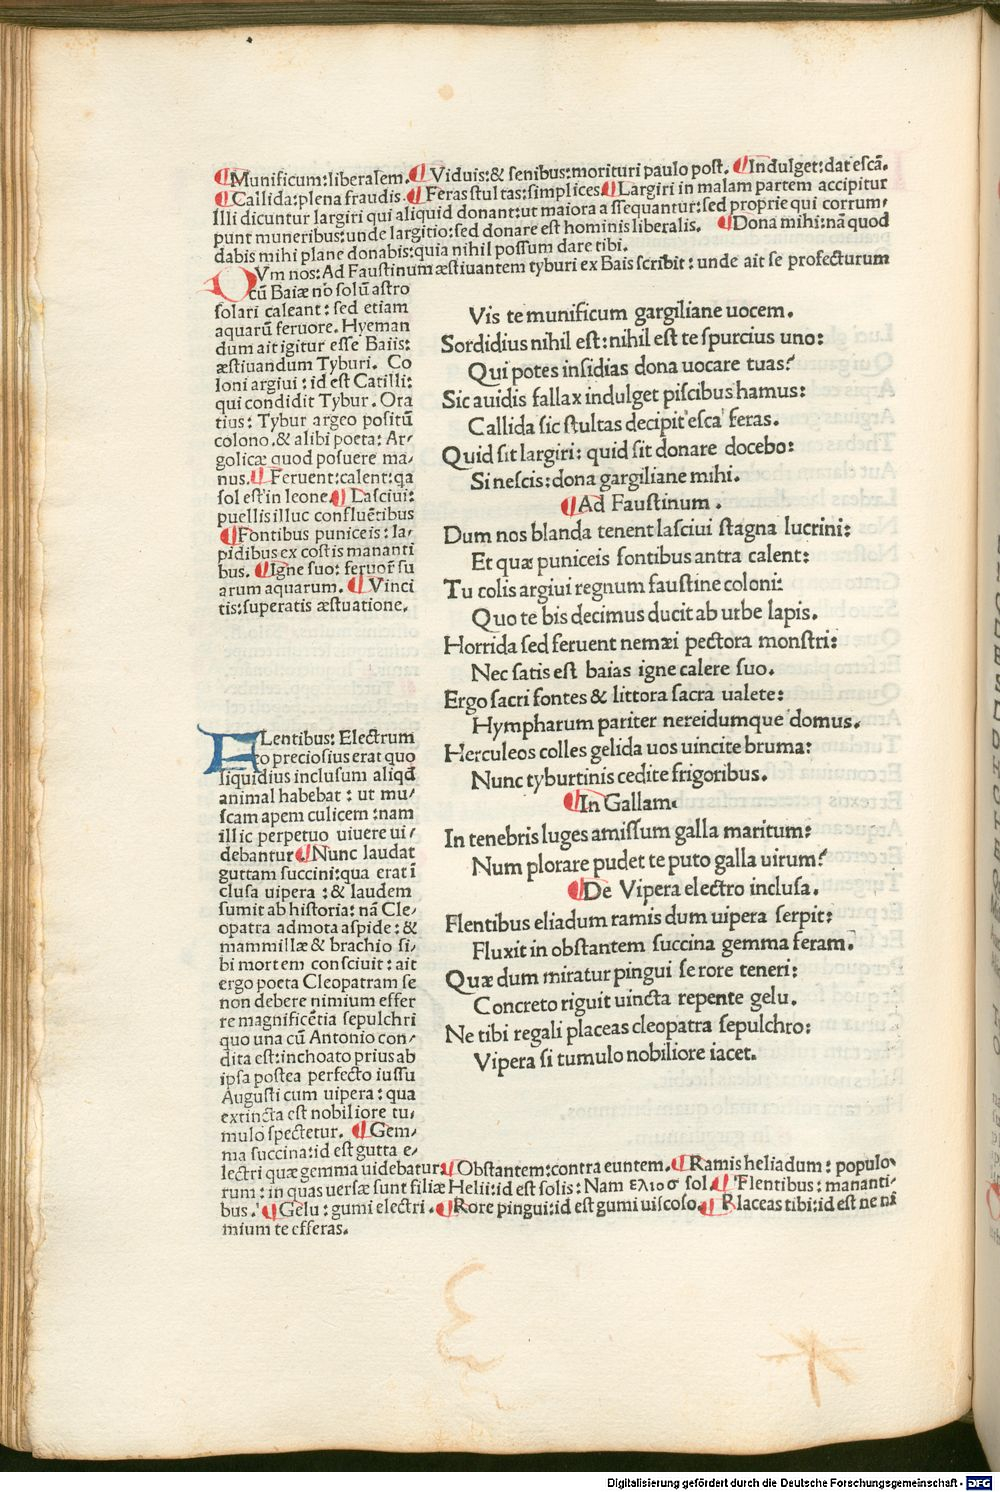 ¶Munificum:liberalem.¶ Viduis:& senibus:morituri paulo post. ¶Indulget:dat escā.
¶Callida:plena fraudis.¶ Feras stultas:simplices.¶ Largiri in malam partem accipitur
Illi dicuntur largiri qui aliquid donant:ut maiora assequantur:sed proprie qui corrum/
punt muneribus:unde largitio:sed donare est hominis liberalis. ¶Dona mihi:nā quod
dabis mihi plane donabis:quia nihil possum dare tibi.
DVm nos:Ad Faustinum æstiuantem tyburi ex Bais scribit: unde ait se profecturum
cū Baiæ nō solū astro
solari caleant: sed etiam
aquarū feruore. Hyeman
dum ait igitur esse Baiis:
æstiuandum Tyburi. Co
loni argiui: id est Catilli:
qui condidit Tybur. Ora
tius: Tybur argeo positū
colono.& alibi poeta: Ar/
golicæ quod posuere ma/
nus.¶ Feruent:calent:qa
sol est in leone.¶ Lasciui:
puellis illuc confluētibus
¶Fontibus puniceis: la/
pidibus ex costis mananti
bus. ¶Igne suo: feruor su
arum aquarum. ¶ Vinci
tis:superatis æstuatione.
Vis te munificum gargiliane uocem.
Sordidius nihil est:nihil est te spurcius uno:
Qui potes insidias dona uocare tuas?
Sic auidis fallax indulget piscibus hamus:
Callida sic stultas decipit esca feras.
Quid sit largiri: quid sit donare docebo:
Si nescis:dona gargiliane mihi.
¶Ad Faustinum.
Dum nos blanda tenent lasciui stagna lucrini:
Et quæ puniceis fontibus antra calent:
Tu colis argiui regnum faustine coloni:
Quo te bis decimus ducit ab urbe lapis.
Horrida sed feruent nemæi pectora monstri:
Nec satis est baias igne calere suo.
Ergo sacri fontes & littora sacra ualete:
Hympharum pariter nereidumque domus.
Herculeos colles gelida uos uincite bruma:
Nunc tyburtinis cedite frigoribus.
¶In Gallam.
In tenebris luges amissum galla maritum:
Num plorare pudet te puto galla uirum?
¶De Vipera electro inclusa.
Flentibus eliadum ramis dum uipera serpit:
Fluxit in obstantem succina gemma feram.
Quæ dum miratur pingui se rore teneri:
Concreto riguit uincta repente gelu.
Ne tibi regali placeas cleopatra sepulchro:
Vipera si tumulo nobiliore iacet.
FLentibus: Electrum
eo preciosius erat quo
liquidius inclusum aliqd
animal habebat: ut mu/
scam apem culicem:nam
illic perpetuo uiuere ui/
debantur.¶Nunc laudat
guttam succini:qua erat ī
clusa uipera:& laudem
sumit ab historia: nā Cle/
opatra admota aspide:&
mammillæ & brachio si/
bi mortem consciuit: ait
ergo poeta Cleopatram se
non debere nimium effer
re magnificētia sepulchri
quo una cū Antonio con/
dita est:inchoato prius ab
ipsa postea perfecto iussu
Augusti cum uipera: qua
extincta est nobiliore tu/
mulo spectetur. ¶Gem/
ma succina:id est gutta e/
lectri quæ gemma uidebatur¶Obstantem:contra euntem.¶Ramis heliadum: populo/
rum: in quas uersæ sunt filiæ Helii:id est solis: Nam ελιοσ sol.¶ Flentibus: mananti/
bus. ¶Gelu: gumi electri.¶Rore pingui:id est gumi uiscoso.¶ Placeas tibi:id est ne ni
mium te efferas.
Digitalisierung gefördert durch die Deutsche Forschungsgemeinschaft - DFG